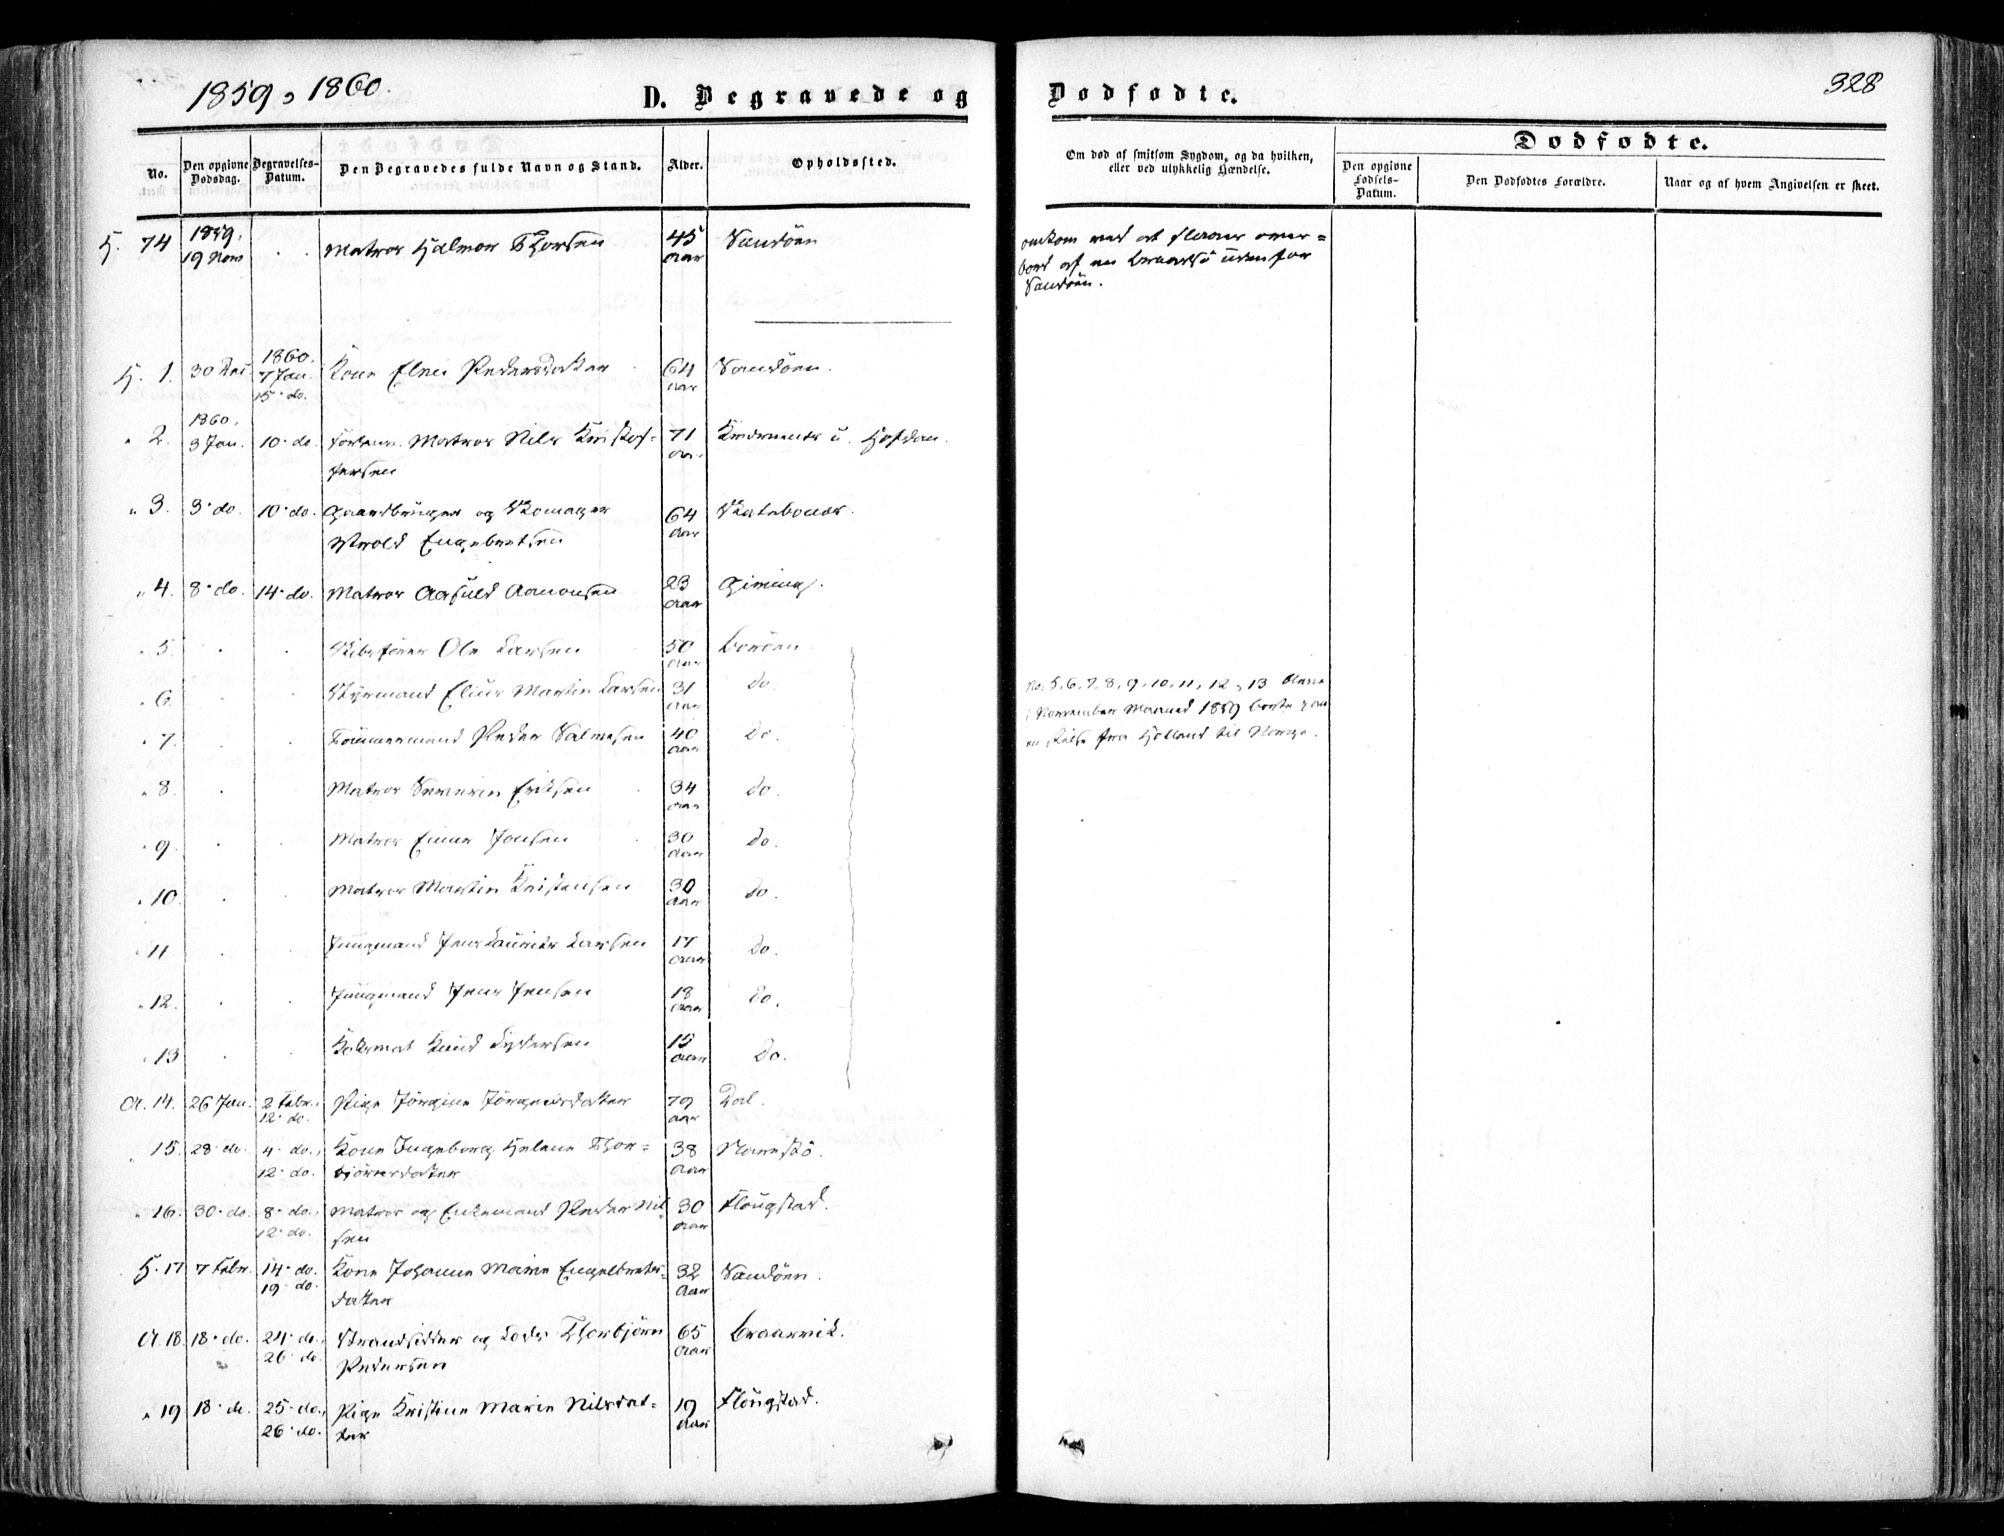 1859 & 1860.
D. Begravede og Dødfødte.
328
No.
Den opgivne Dødsdag.
Begravelses-Datum.
Den Begravedes fulde Navn og Stand.
Alder.
Opholdssted.
Om død af smitsom Sygdom, og da hvilken, eller ved ulykkelig Hændelse.
Dødfødte.
Den opgivne Fødsels-Datum.
Den Dødfødtes Forældre.
Naar og af hvem Angivelsen er skeet.
H. 74 1859. 19 Nov . . Matros Halvor Thorsen 45 Aar Sandøen
omkom ved at slaaes over=
bord af en Braadsø udenfor
Sandøen.
H. 1. 30 Dec. 1860. 7 Jan. 15. do. Kone Elen Pedersdatter 64 Aar Sandøen.
" 2. 1860. 3 Jan. 10. do. Matros Nils Kristof=
fersen 71 Aar
" 3. 3. do. 10. do. Gaardbruger og Skomager
Engebretsen 64 Aar
" 4. 8. do. 14. do. Matros Aasuld Aanonsen 23 Aar Gjeving.
" 5. . . Skibsfører Ole Larsen 50 Aar Borøen.
" 6. . . Styrmand Martin Larsen 31 Aar Do.
" 7. . . Tømmermand Peder Salvesen 40 Aar Do.
" 8. . . Matros Severin Eriksen 34 Aar Do.
" 9. . . Matros Jensen 30 Aar Do.
" 10. . . Matros Martin Kristensen 30 Aar Do.
" 11. . . Jungmand Jens Lauritz Larsen 17 Aar Do.
" 12. . . Jungmand Jens Jensen 18 Aar Do.
" 13 . . Koksmat Knud 15 Aar Do.
No. 5, 6, 7, 8, 9, 10, 11, 12, 13 bleve
i November Maaned 1859 borte paa
en Reise fra Holland til Norge.
A. 14. 26 Jan. 2 Febr., 12. do. Pige Jørgine Jørgensdatter 79 Aar Dal.
" 15. 28. do. 4. do., 12. do. Kone Ingeborg Helene Thor=
bjørnsdatter 38 Aar
" 16. 30. do. 8. do., 12. do. Matros og Enkemand Peder Nil=
sen 30 Aar Flougstad.
H. 17 7 Febr. 14. do. 19. do. Kone Johanne Marie Engelbrets=
datter 32 Aar Sandøen.
A. 18. 18. do. 24. do., 26. do. Strandsidder og Lods Thorbjørn
Pedersen 65 Aar
" 19 18. do. 25. do., 26. do. Pige Kristine Marie Nilsdat=
ter 19 Aar Flougstad.